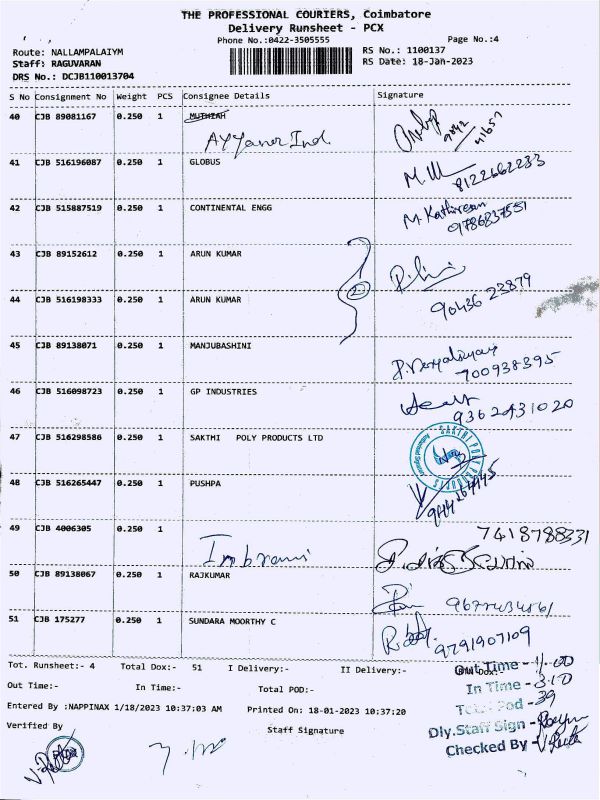 THE PROFESSIONAL COURIERS, Coimbatore
Delivery Runsheet - PCX
Phone No.:0422-3505555
Page No.:4
Route: NALLAMPALAIYM
RS No.: 1100137
Staff: RAGUVARAN
RS Date: 18-Jan-2023
DRS No.: DCJB110013704
S No Consignment No Weight PCS Consignee Details Signature
40 CJB 89081167 0.250 1 MUTHIAH
AYYanar Ind
9842
41657
41 CJB 516196087 0.250 1 GLOBUS
8122662233
42 CJB 515887519 0.250 1 CONTINENTAL ENGG
M. Kathiresan
9786837551
43 CJB 89152612 0.250 1 ARUN KUMAR
2
44 CJB 516198333 0.250 1 ARUN KUMAR
90436 23879
45 CJB 89138071 0.250 1 MANJUBASHINI
700938395
46 CJB 516098723 0.250 1 GP INDUSTRIES
9362431020
47 CJB 516298586 0.250 1 SAKTHI POLY PRODUCTS LTD
SAKTHI POLY PRODUCTS
48 CJB 516265447 0.250 1 PUSHPA
49 CJB 4006305 0.250 1
7418788331
50 CJB 89138067 0.250 1 RAJKUMAR
51 CJB 175277 0.250 1 SUNDARA MOORTHY C
9791907109
Tot. Runsheet:- 4 Total Dox:- 51 I Delivery:- II Delivery:-
Out Time - 1.00
Out Time:- In Time:- Total POD:-
In Time - 3.10
Total Pod - 39
Entered By :NAPPINAX 1/18/2023 10:37:03 AM Printed On: 18-01-2023 10:37:20
Dly.Staff Sign -
Verified By Staff Signature
Checked By -